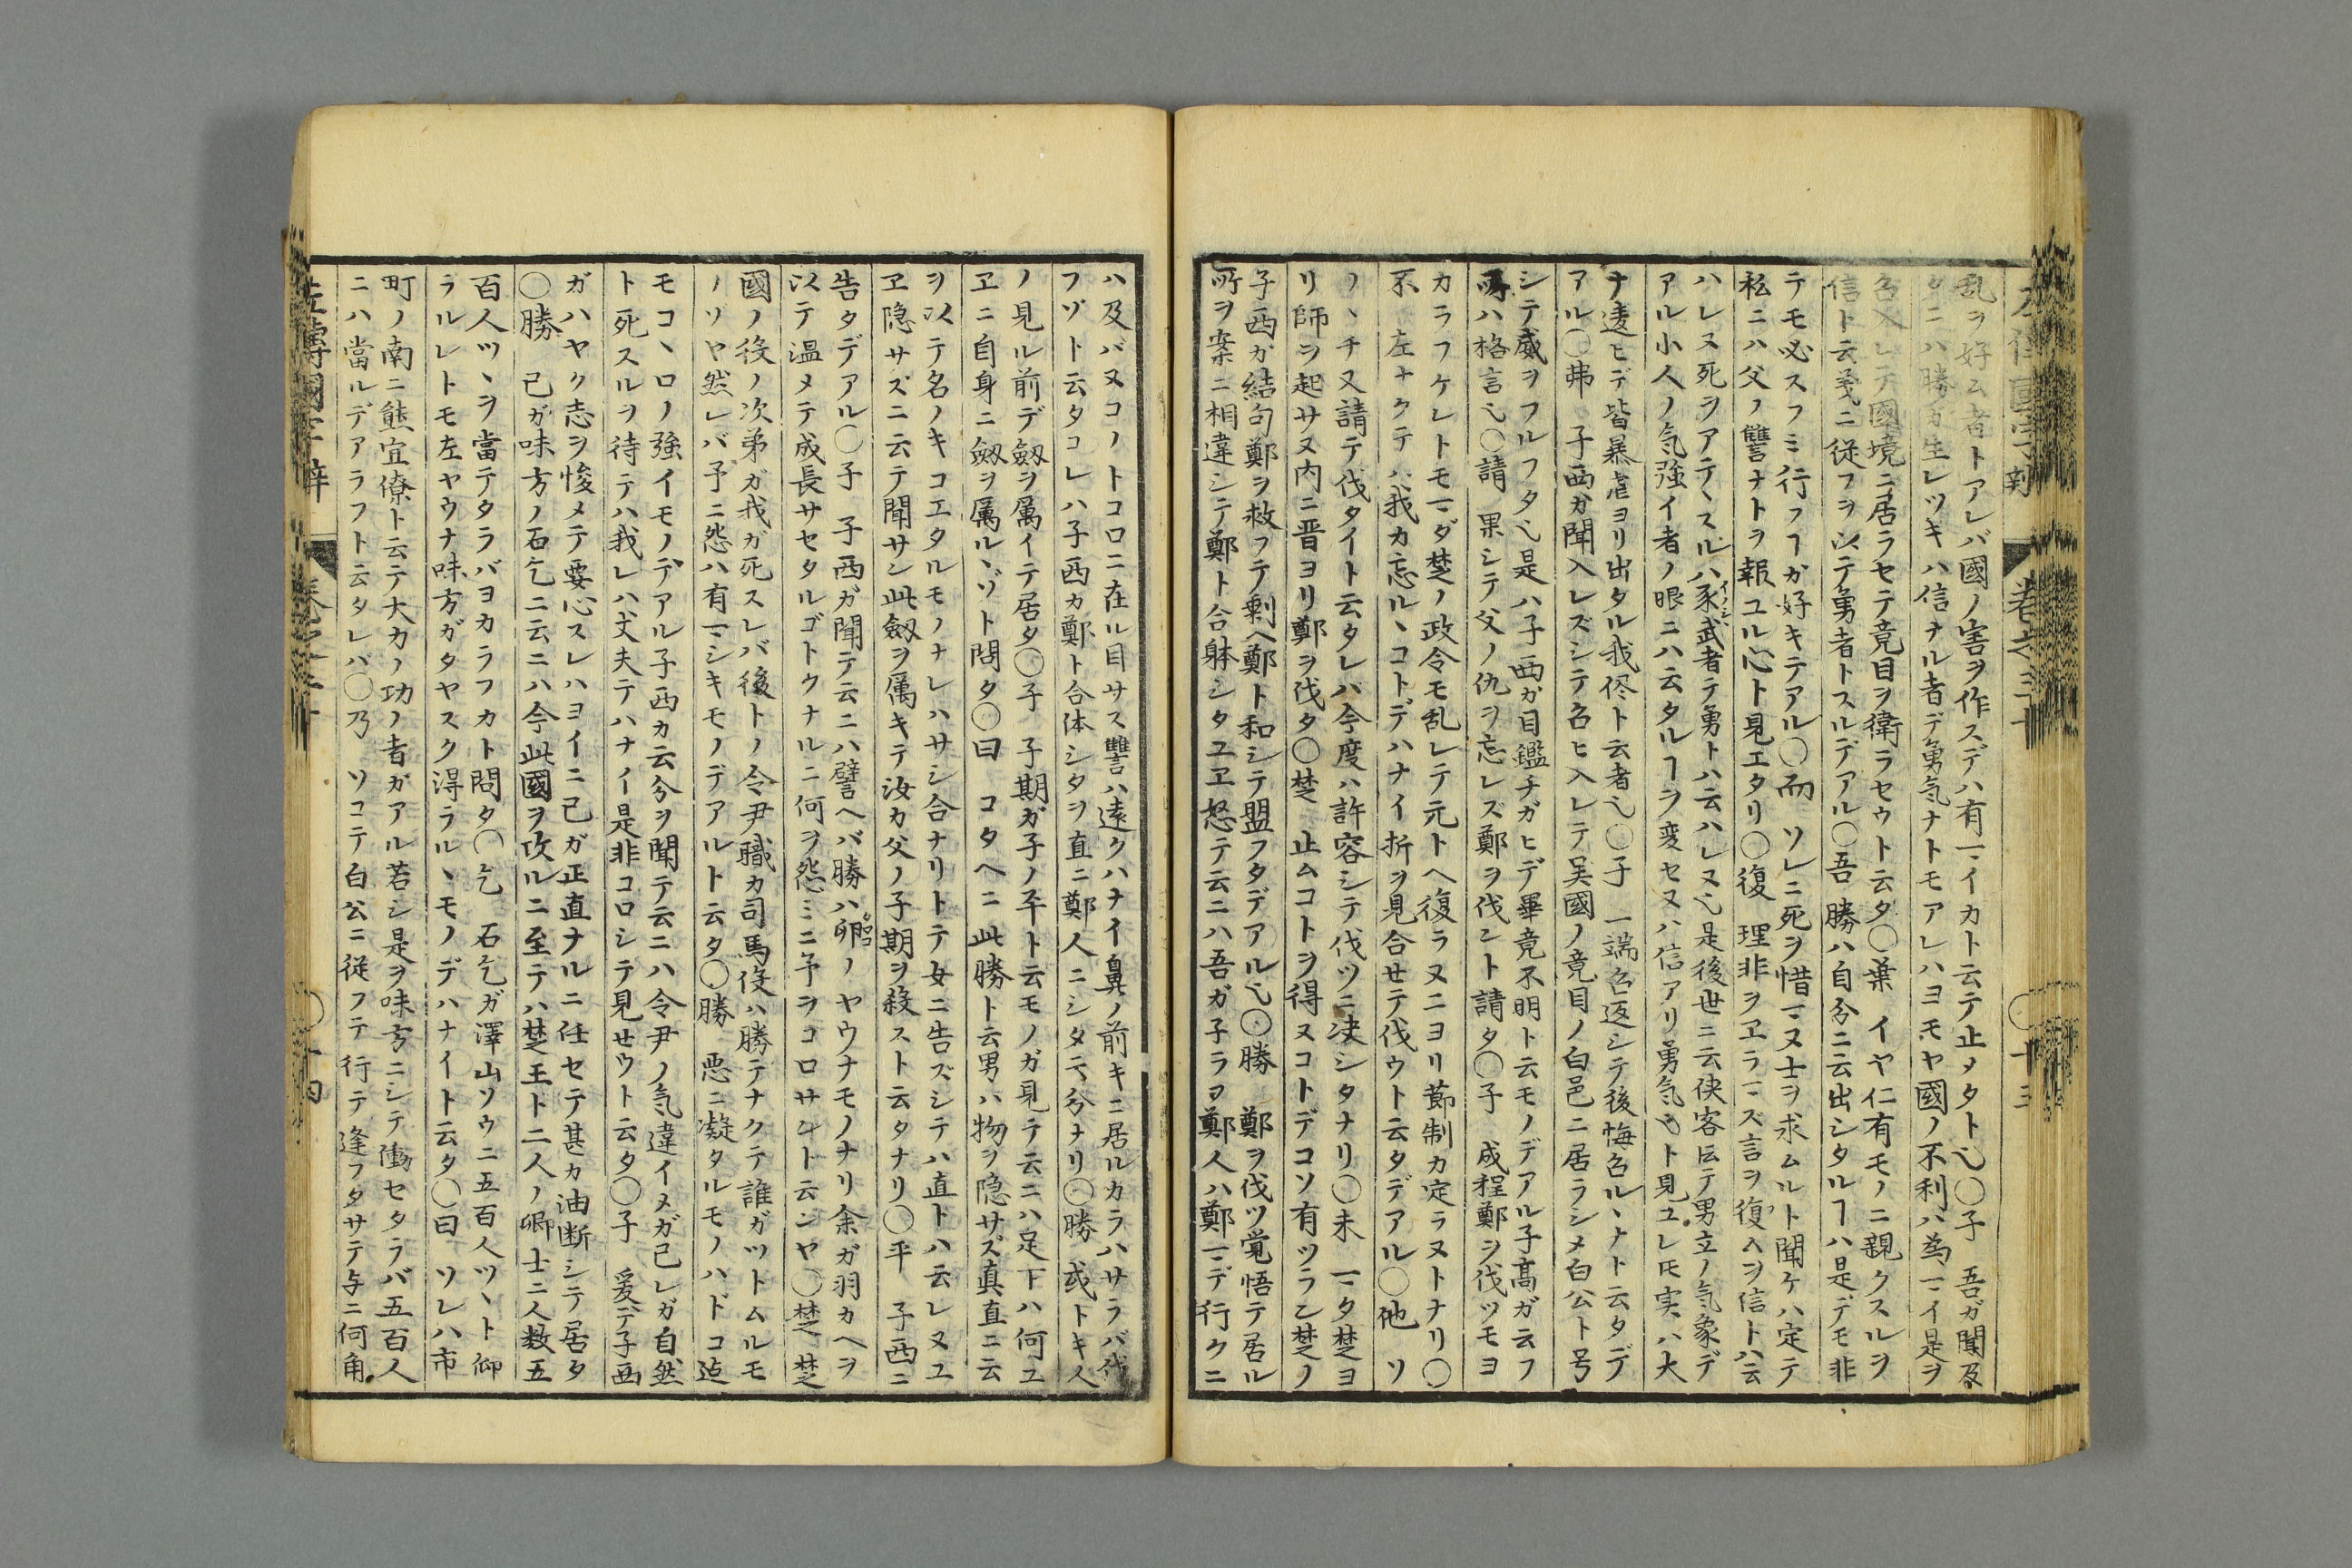 乱ヲ好ム者トアレバ國ノ害ヲ作スデハ有マイカト云テ止メタト也〇子　吾ガ聞及
タニハ勝ガ生レツキハ信ナル者デ勇気ナトモアレハヨモヤ國ノ不利ハ為マイ是ヲ
召入レテ國境ニ居ラセテ竟目ヲ衛ラセウト云タ〇葉　イヤ仁有モノニ親クスルヲ
信ト云義ニ従フヲ以テ勇者トスルデアル〇吾　勝ハ自分ニ云出シタルヿハ是デモ非
テモ必スフミ行フヿガ好キテアル〇而　ソレニ死ヲ惜マヌ士ヲ求ムルト聞ケハ定テ
私ニハ父ノ讐ナトヲ報ユル心ト見エタリ〇復　理非ヲヱラマズ言ヲ復ヘヲ信トハ云
ハレヌ死ヲアテヽスルハ豕武者テ勇トハ云ハレヌ也是後世ニ云侠客トテ男立ノ気象デ
アル小人ノ気強イ者ノ眼ニハ云タルヿヲ変セヌハ信アリ勇気也ト見ユレ𪜈実ハ大
ナ違ヒデ皆暴虐ヨリ出タル我侭ト云者也〇子　一端召返シテ後悔召ルヽナト云タデ
アル〇弗　子西ガ聞入レズシテ召ヒ入レテ吴國ノ竟目ノ白邑ニ居ラシメ白公ト号
シテ威ヲフルフタ也是ハ子西ガ目鑑チガヒデ畢竟不明ト云モノデアル子高ガ云フ
所ハ格言也〇請　果シテ父ノ仇ヲ忘レズ鄭ヲ伐ント請タ〇子　成程鄭ヲ伐ツモヨ
カラフケレトモマダ楚ノ政令モ乱レテ元トヘ復ラヌニヨリ節制カ定ラヌトナリ〇
不　左ナクテハ我カ忘ルヽコトデハナイ折ヲ見合せテ伐ウト云タデアル〇他　ソ
ノヽチ又請テ伐タイト云タレバ今度ハ許容シテ伐ツニ决シタナリ〇未　マタ楚ヨ
リ師ヲ起サヌ内ニ晋ヨリ鄭ヲ伐タ〇楚　止ムコトヲ得ヌコトデコソ有ツラン楚ノ
子西ガ結句鄭ヲ救フテ剰ヘ鄭ト和シテ盟フタデアル也〇勝　鄭ヲ伐ツ覚悟テ居ル
所ヲ案ニ相違シテ鄭ト合躰シタユヱ怒テ云ニハ吾ガ子ラヲ鄭人ハ鄭マデ行クニ
ハ及バヌコノトコロニ在ル目サス讐ハ遠クハナイ鼻ノ前キニ居ルカラハサラバ伐
フゾト云タコレハ子西カ鄭ト合体シタヲ直ニ鄭人ニシタテ分ナリ〇勝　或トキ人
ノ見ル前デ劔ヲ属イテ居タ〇子　子期ガ子ノ平ト云モノガ見テ云ニハ足下ハ何ユ
ヱニ自身ニ劔ヲ属ルヽゾト問タ〇曰　コタヘニ此勝ト云男ハ物ヲ隠サズ真直ニ云
ヲ以テ名ノキコエタルモノナレハサシ合ナリトテ女ニ告ズシテハ直トハ云レヌユ
ヱ隠サズニ云テ聞サン此劔ヲ属キテ汝カ父ノ子期ヲ殺スト云タナリ〇平　子西ニ
告タデアル〇子　子西ガ聞テ云ニハ譬ヘバ勝ハ卵ノヤウナモノナリ余ガ羽カヘヲ
以テ温メテ成長サセタルゴトクナルニ何ヲ怨ミニ予ヲコロサント云ンヤ〇楚　楚
國ノ役ノ次弟ガ我ガ死スレバ後トノ令尹職カ司馬役ハ勝テナクテ誰ガツトムルモ
ノソヤ然レバ予ニ怨ハ有マシキモノデアルト云タ〇勝　悪ニ凝タルモノハドコ迠
モコヽロノ強イモノデアル子西カ云分ヲ聞テ云ニハ令尹ノ気違イメガ己レガ自然
ト死スルヲ待テハ我レハ丈夫テハナイ是非コロシテ見せウト云タ〇子　爰デ子西
ガハヤク志ヲ悛メテ要心スレハヨイニ己ガ正直ナルニ任セテ甚カ油断シテ居タ
〇勝　己ガ味方ノ石乞ニ云ニハ今此國ヲ攻ルニ至テハ楚王ト二人ノ卿士ニ人数五
百人ツヽヲ當テタラバヨカラフカト問タ〇乞　石乞ガ澤山ソウニ五百人ツヽト仰
ラルレトモ左ヤウナ味方ガタヤスク得ラルヽモノデハナイト云タ〇曰　ソレハ市
町ノ南ニ熊宜僚ト云テ大力ノ功ノ者ガアル若シ是ヲ味方ニシテ働セタラバ五百人
ニハ當ルデアラフト云タレバ〇乃　ソコテ白公ニ従フテ行テ逢フタサテ与ニ何角